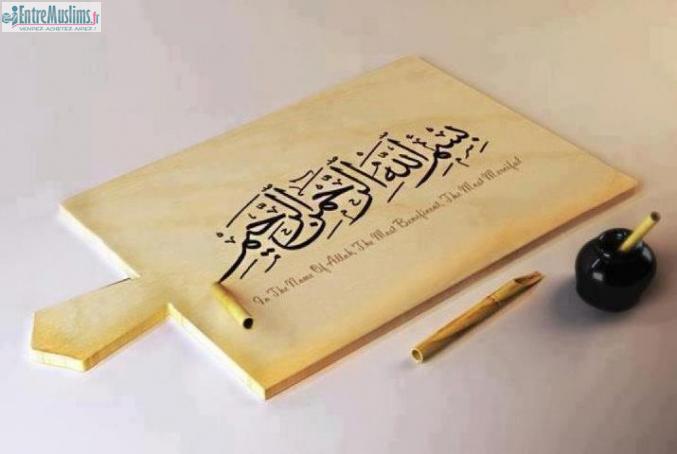 @iEntreMuslims.fr
VENDEZ ACHETEZ AIMEZ !
بِسْمِ اللَّهِ الرَّحْمَٰنِ الرَّحِيمِ
In The Name Of Allah, The Most Beneficent, The Most Merciful